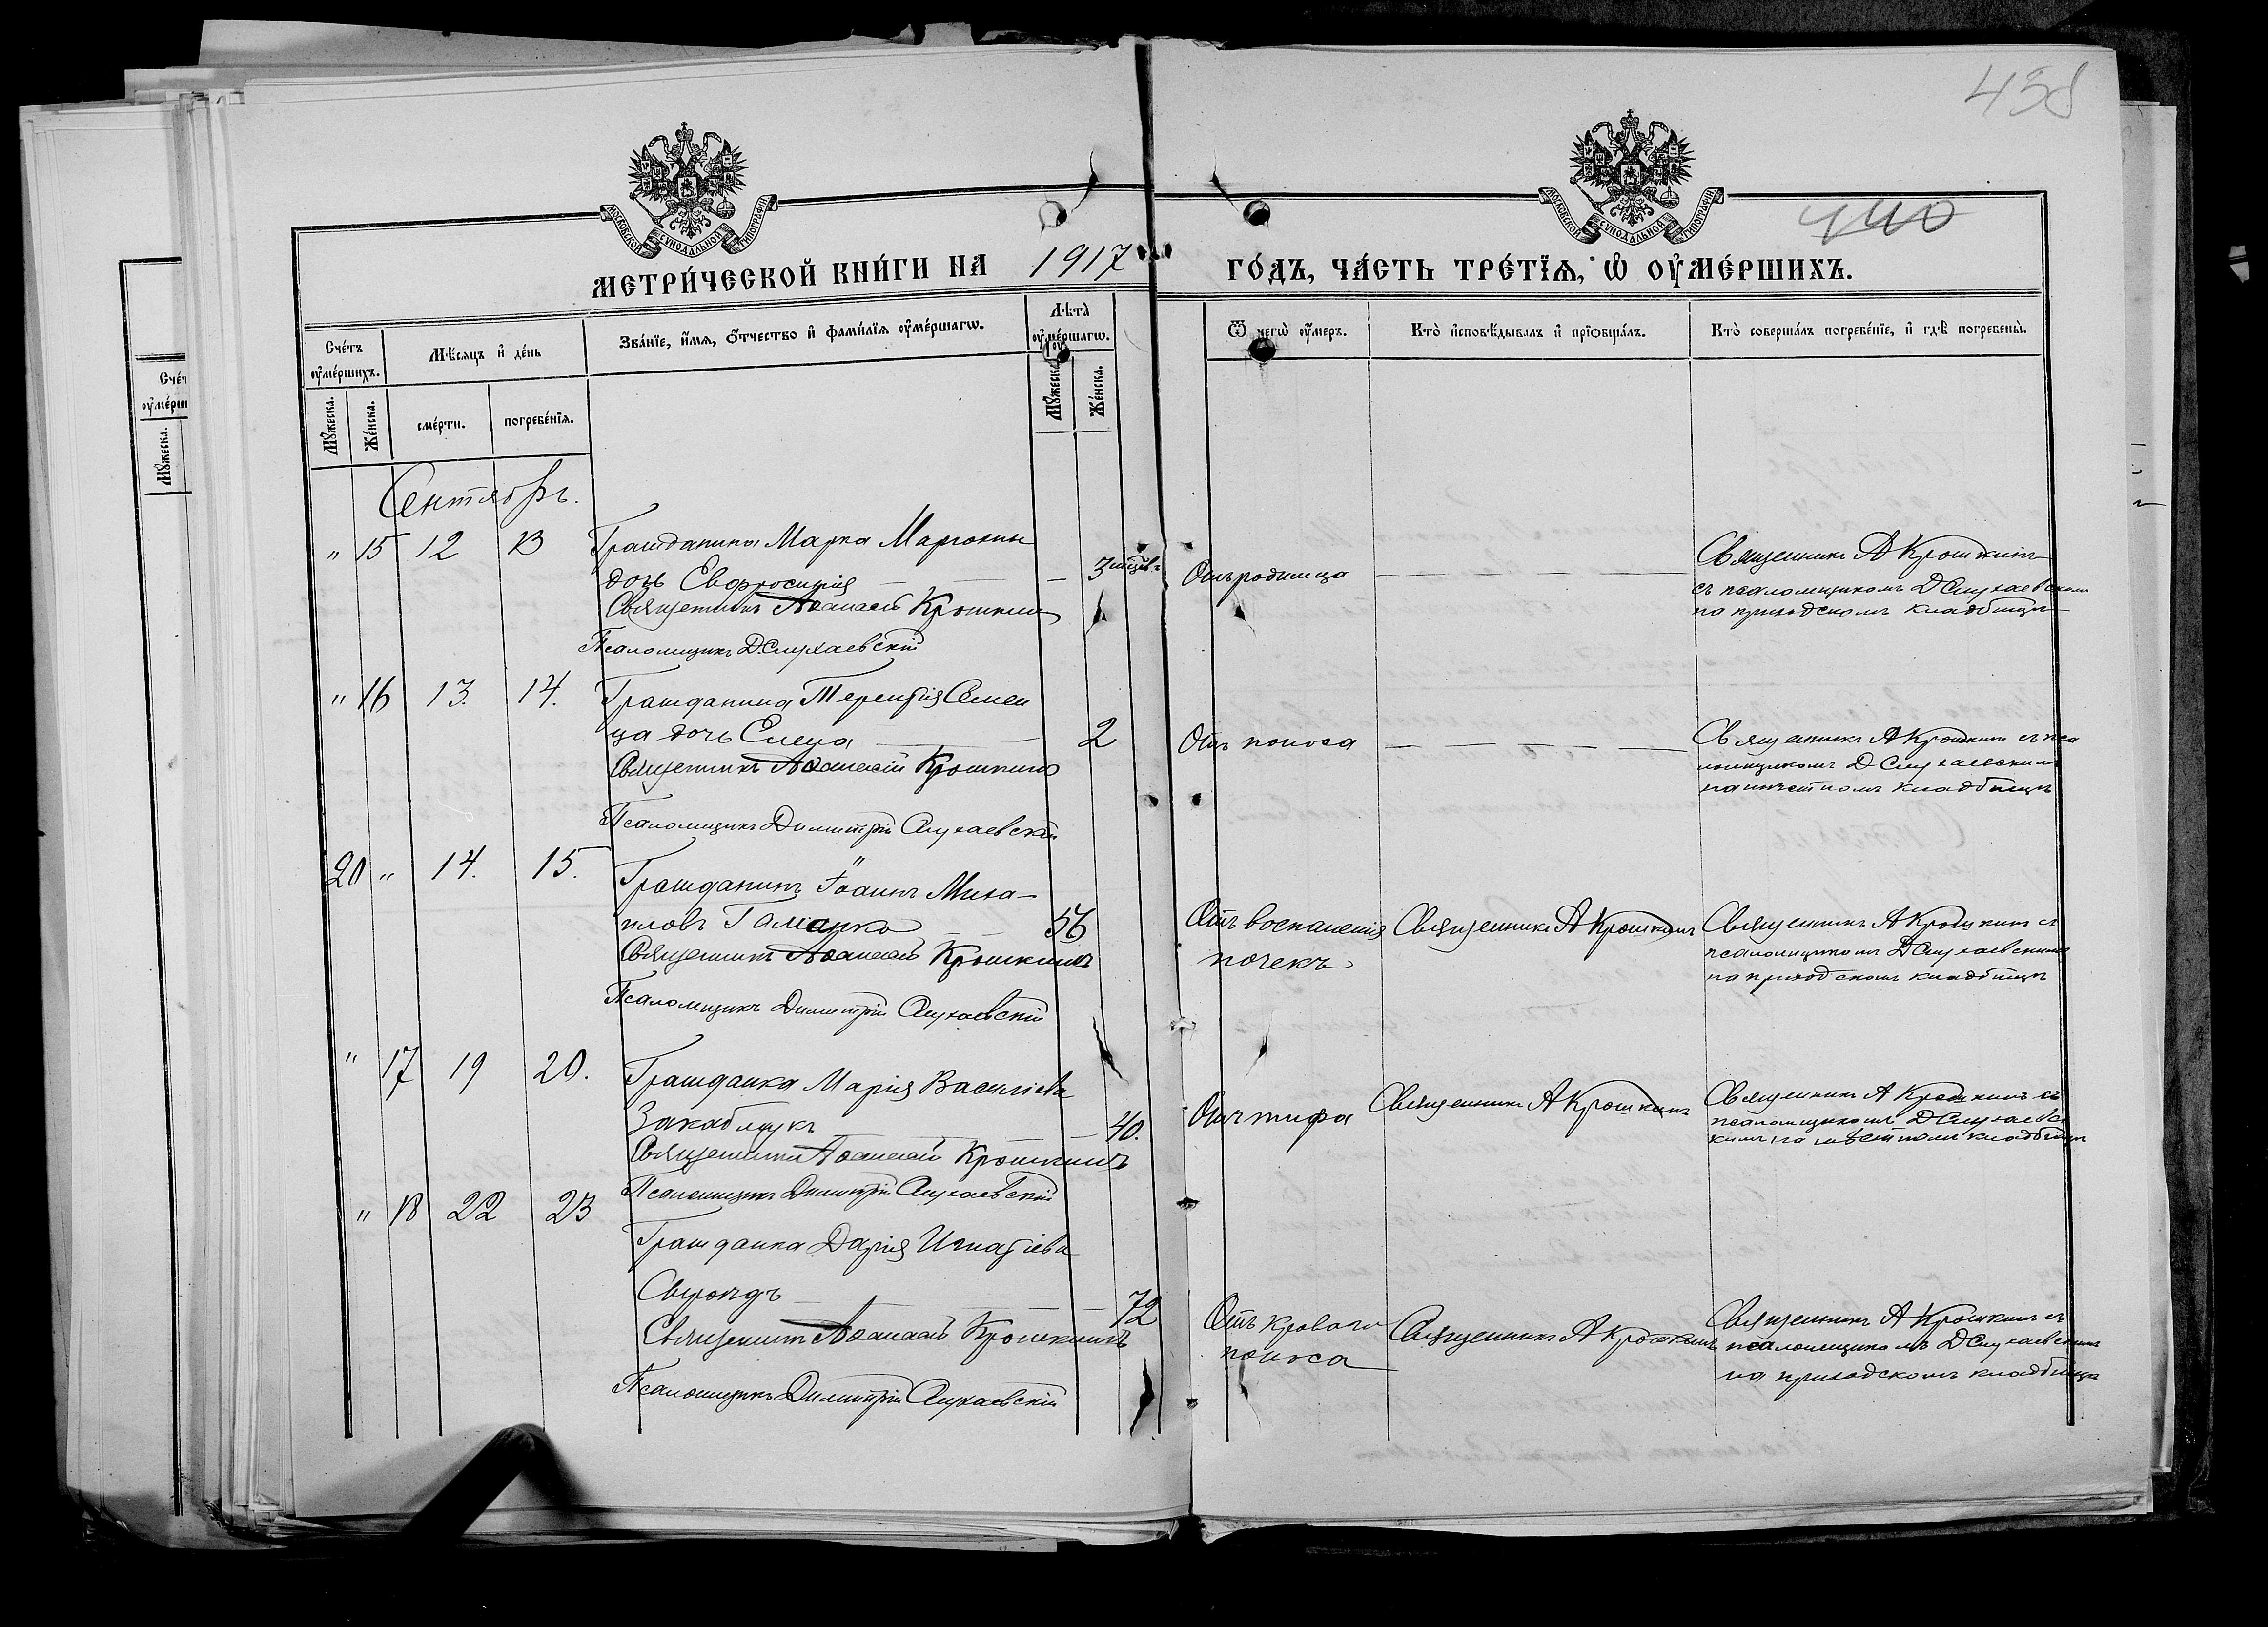 458
440
МОСКОВСКОЙ СѴНОДАЛЬНОЙ ТИПОГРАФІИ
МОСКОВСКОЙ СѴНОДАЛЬНОЙ ТИПОГРАФІИ
МЕТРИ́ЧЕСКОЙ КНИ́ГИ НА 1917 ГО́ДЪ, ЧА́СТЬ ТРЕ́ТІѦ, Ѡ ОУМЕ́РШИХЪ.
Сче́тъ оумершихъ.
Мꙋжеска.
Же́нска.
Мѣсяцъ и де́нь
сме́рти.
погребе́нїѧ.
Зва́нїе, и҆́мѧ, о҆́тчество и҆ фами́лїѧ оуме́ршагѡ.
Лѣта̀ оуме́ршагѡ.
Мꙋжеска
Же́нска.
Ѿ чегѡ̀ оу҆́меръ.
Кто̀ и҆сповѣ́дывалъ и҆ прїѡбща́лъ.
Кто̀ соверша́лъ погребе́нїе, и҆ гдѣ̀ погребены̀.
Сентябрь.
" 15 12 13 Гражданина Марка
дочь Евфросинія — 3 мѣсяц.
Священникъ Аѳанасій Крошкинъ
Псаломщикъ Д. Слухаевскій
Отъ родимца
Священникъ А Крошкинъ
съ псаломщикомъ Д Слухаевскимъ
на приходскомъ кладбищѣ
" 16 13. 14. Гражданина Терентія Семен
ца дочь Елена — 2
Священникъ Аѳанасій Крошкинъ
Псаломщикъ Димитрій Слухаевскій
Отъ поноса
Священникъ А Крошкинъ съ пса
ломщикомъ Д Слухаевскимъ
на мѣстномъ кладбищѣ
20 " 14. 15. Гражданинъ Іоаннъ Миха-
иловъ Гаманко — 56
Священникъ Аѳанасій Крошкинъ
Псаломщикъ Димитрій Слухаевскій
Отъ воспаленія
почекъ
Священникъ А Крошкинъ
Священникъ А Крошкинъ съ
псаломщикомъ Д Слухаевскимъ
на приходскомъ кладбищѣ
" 17 19 20. Гражданка Марія Васильева
Закаблукъ — 40.
Священникъ Аѳанасій Крошкинъ
Псаломщикъ Димитрій Слухаевскій
Отъ тифа
Священникъ А Крошкинъ
Священникъ А Крошкинъ съ
псаломщикомъ Д Слухаевс
кимъ на мѣстномъ кладбищѣ
" 18 22 23 Гражданка Дарія Игнатіева
— 72
Священникъ Аѳанасій Крошкинъ
Псаломщикъ Димитрій Слухаевскій
Отъ кроваго
поноса
Священникъ А Крошкинъ
Священникъ А Крошкинъ съ
псаломщикомъ Д Слухаевскимъ
на приходскомъ кладбищѣ